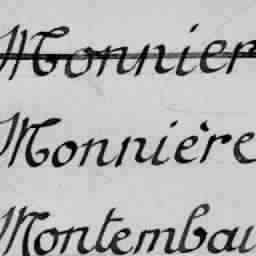 Monnier
Monnière
Montembau